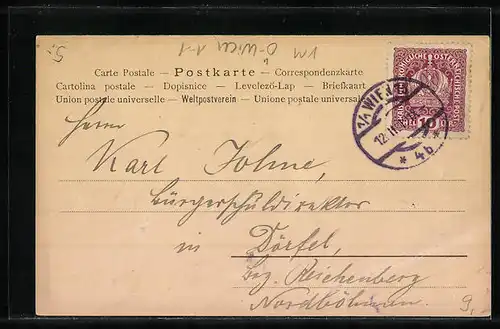 5.-
Carte Postale – Postkarte – Correspondenzkarte
Cartolina postale – Dopisnice – Levelező-Lap – Briefkaart
Union postale universelle – Weltpostverein – Unione postale universale
1/1 WIEN
12. II
* 4b
10
Herrn
Karl Johne,
Bürgerschuldirektor
in Dörfel,
Bez. Reichenberg
Nordböhmen.
9.-